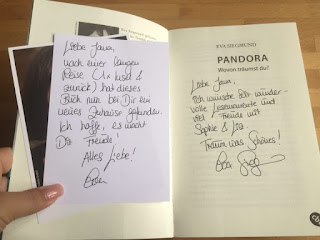 Liebe Jana,
nach einer langen
Reise (1x Insel &
zurück) hat dieses
Buch nun bei Dir ein
neues Zuhause gefunden.
Ich hoffe, es macht
Dir Freude!
Alles Liebe!
EVA SIEGMUND
PANDORA
Wovon träumst du?
Liebe Jana,
Ich wünsche Dir wunder-
volle Lesemomente und
viel Freude mit
Sophie & Liz.
Träum was Schönes!